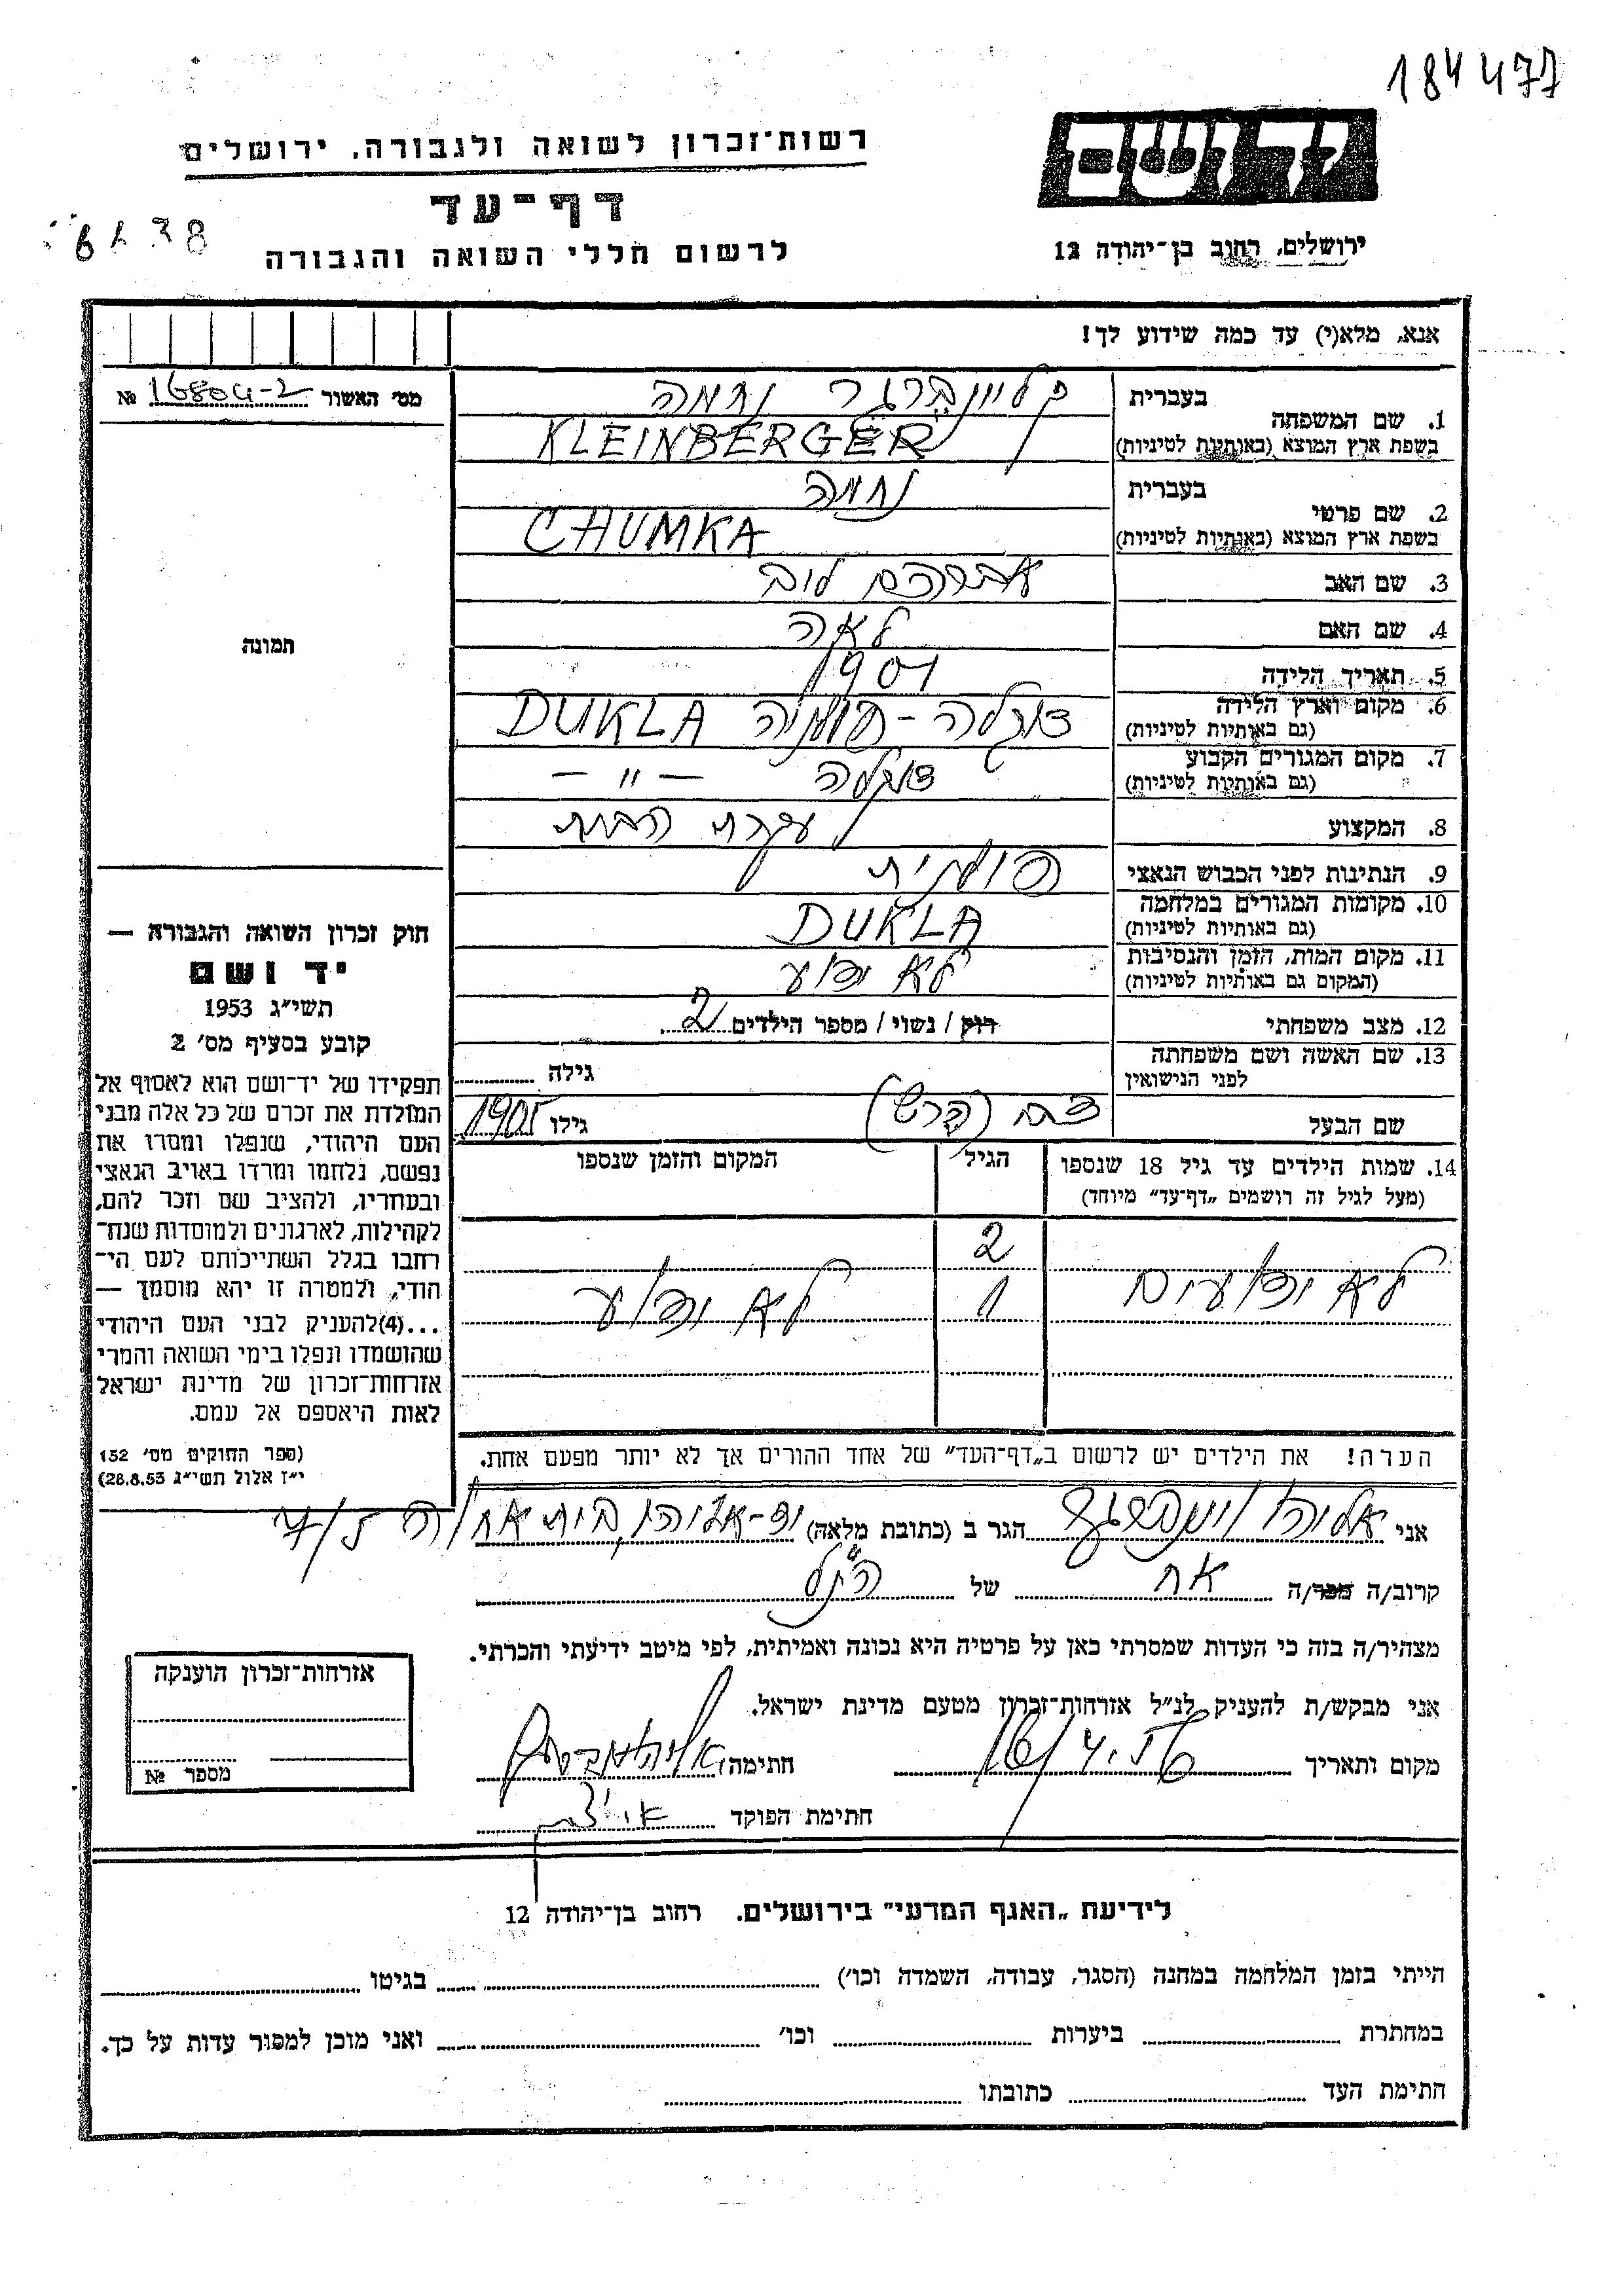 184477
ידושם
ירושלים, רחוב בן־יהודה 12
רשות־זכרון לשואה ולגבורה, ירושלים
דף־עד
לרשום חללי השואה והגבורה
אנא, מלא(י) עד כמה שידוע לך!
מס' האשור 16804-2 №
תמונה
1. שם המשפחה
בעברית קליינברגר נחמה
בשפת ארץ המוצא (באותיות לטיניות) KLEINBERGER
2. שם פרטי
בעברית נחמה
בשפת ארץ המוצא (באותיות לטיניות) CHUMKA
3. שם האב אברהם לוב
4. שם האם לאה
5. תאריך הלידה 1901
6. מקום וארץ הלידה דוקלה - פולניה DUKLA
(גם באותיות לטיניות)
7. מקום המגורים הקבוע דוקלה — " —
(גם באותיות לטיניות)
8. המקצוע עקרת הבית
9. הנתינות לפני הכבוש הנאצי פולנית
10. מקומות המגורים במלחמה DUKLA
(גם באותיות לטיניות)
11. מקום המות, הזמן והנסיבות לא ידוע
(המקום גם באותיות לטיניות)
12. מצב משפחתי רוק / נשוי / מספר הילדים 2
13. שם האשה ושם משפחתה
לפני הנישואין גילה
שם הבעל גילו 1905
14. שמות הילדים עד גיל 18 שנספו הגיל המקום והזמן שנספו
(מעל לגיל זה רושמים „דף־עד" מיוחד)
2
לא ידועים 1 לא ידוע
הערה! את הילדים יש לרשום ב„דף־העד" של אחד ההורים אך לא יותר מפעם אחת.
חוק זכרון השואה והגבורה —
יד ושם
תשי"ג 1953
קובע בסעיף מס' 2
תפקידו של יד־ושם הוא לאסוף אל
המולדת את זכרם של כל אלה מבני
העם היהודי, שנפלו ומסרו את
נפשם, נלחמו ומרדו באויב הנאצי
ובעוזריו, ולהציב שם וזכר להם,
לקהילות, לארגונים ולמוסדות שנח־
רבו בגלל השתייכותם לעם הי־
הודי, ולמטרה זו יהא מוסמך —
...(4) להעניק לבני העם היהודי
שהושמדו ונפלו בימי השואה והמרי
אזרחות־זכרון של מדינת ישראל
לאות היאספם אל עמם.
(ספר החוקים מס' 132
י"ז אלול תשי"ג 28.8.53)
אני אליהו הגר ב (כתובת מלאה) יד-אליהו,
קרוב/ה מכר/ה אח של הנ"ל
מצהיר/ה בזה כי העדות שמסרתי כאן על פרטיה היא נכונה ואמיתית, לפי מיטב ידיעתי והכרתי.
אני מבקש/ת להעניק לנ"ל אזרחות־זכרון מטעם מדינת ישראל.
מקום ותאריך חתימה
חתימת הפוקד
אזרחות־זכרון הוענקה
מספר №
לידיעת „האגף המדעי" בירושלים. רחוב בן־יהודה 12
הייתי בזמן המלחמה במחנה (הסגר, עבודה, השמדה וכו') בגיטו
במחתרת ביערות וכו' ואני מוכן למסור עדות על כך.
חתימת העד כתובתו